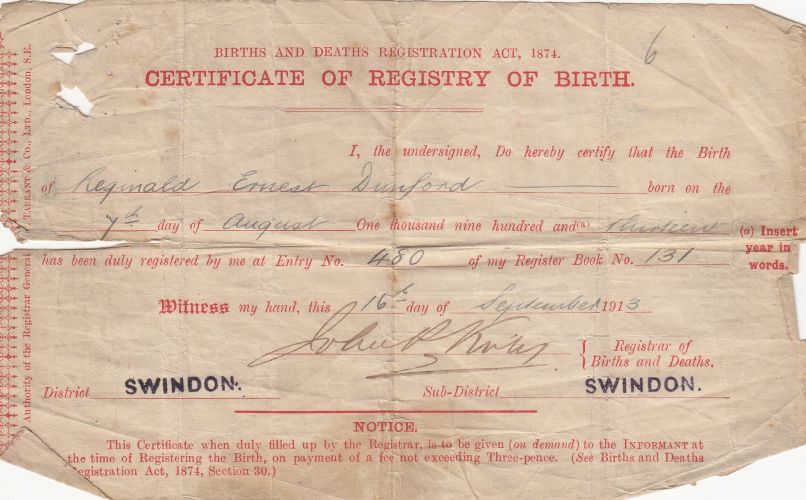 6
BIRTHS AND DEATHS REGISTRATION ACT, 1874.
CERTIFICATE OF REGISTRY OF BIRTH.
I, the undersigned, Do hereby certify that the Birth
of Reginald Ernest Dunford born on the
7th day of August One thousand nine hundred and (a) thirteen
(a) Insert
year in
words.
has been duly registered by me at Entry No. 480 of my Register Book No. 131
Witness my hand, this 16th day of September 1913
John P.
Registrar of
Births and Deaths.
District SWINDON. Sub-District SWINDON.
NOTICE.
This Certificate when duly filled up by the Registrar, is to be given (on demand) to the INFORMANT at
the time of Registering the Birth, on payment of a fee not exceeding Three-pence. (See Births and Deaths
Registration Act, 1874, Section 30.)
Authority of the Registrar General
TARRANT & CO., LTD., London, S.E.